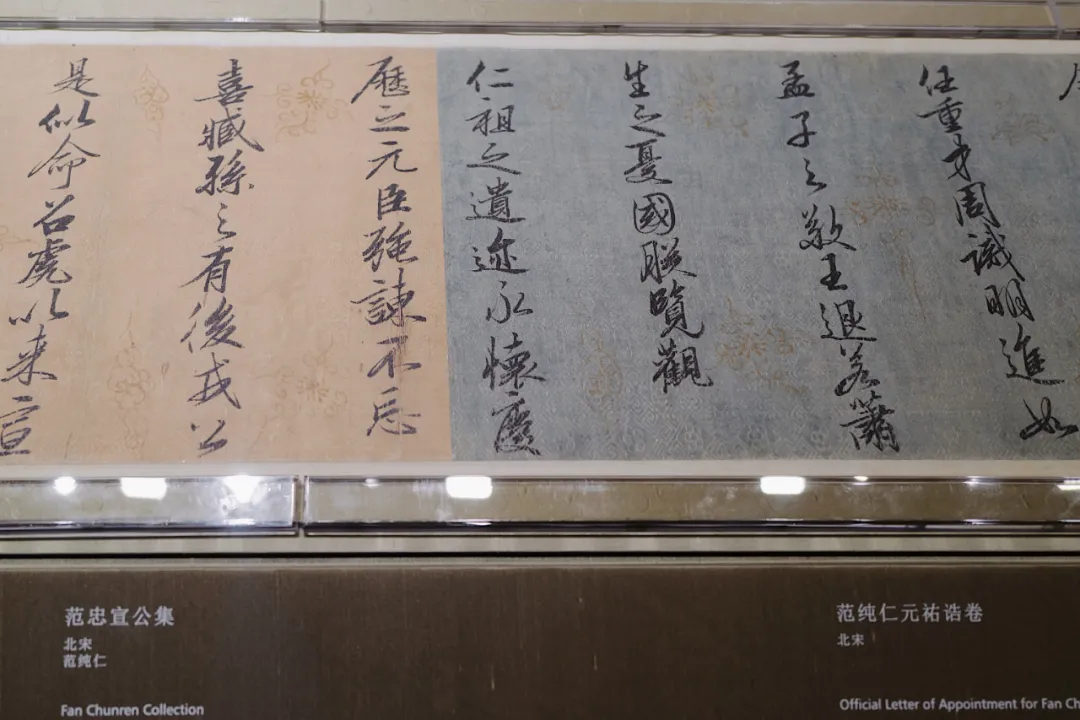 任重才周識明進如
孟子之敬王退若蕭
生之憂國朕覽觀
仁祖之遺迹永懷慶
曆之元臣強諫不忘
喜臧孫之有後戎公
是似命召虎以来宣
范忠宣公集
北宋
范纯仁
Fan Chunren Collection
范纯仁元祐诰卷
北宋
Official Letter of Appointment for Fan Ch